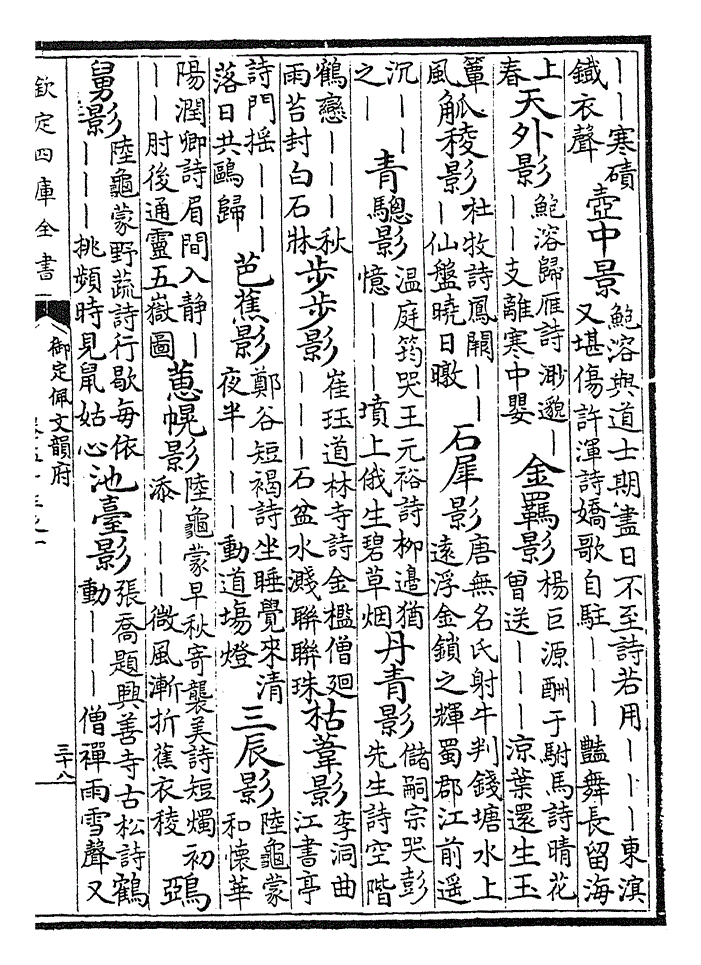 ｜｜寒磧鐵衣聲壺中景鮑溶與道士期盡日不至詩若用｜｜｜東滇又堪傷許渾詩嬌歌自駐｜｜｜豔舞長留海
上春天外影鮑溶歸雁詩渺邈｜｜｜支離寒中嬰金羈影楊巨源酬于駙馬詩晴花曾送｜｜｜涼葉還生玉
簟風觚稜影杜牧詩鳳闕｜｜｜仙盤曉日暾石犀影唐無名氏射牛判錢塘水上遠浮金鎖之輝蜀郡江前遥
沉｜｜之｜青驄影溫庭筠哭王元裕詩柳邉猶憶｜｜｜墳上俄生碧草烟丹青影儲嗣宗哭彭先生詩空階
鶴戀｜｜｜秋雨苔封白石牀步步影崔珏道林寺詩金檻僧廻｜｜｜石盆水濺聯聯珠枯葦影李洞曲江書亭
詩門揺｜｜｜落日共鷗歸芭蕉影鄭谷短褐詩坐睡覺來清夜半｜｜｜動道塲燈三辰影陸龜蒙和懷華
陽潤卿詩眉間入静｜｜｜肘後通靈五嶽圖蕙幌影陸龜蒙早秋寄襲美詩短燭初添｜｜｜微風漸折蕉衣稜鵶
舅影陸龜蒙野蔬詩行歇每依｜｜｜挑頻時見鼠姑心池臺影張喬題興善寺古松詩鶴動｜｜｜僧禪雨雪聲又
欽定四庫全書
御定佩文韻府
三十八